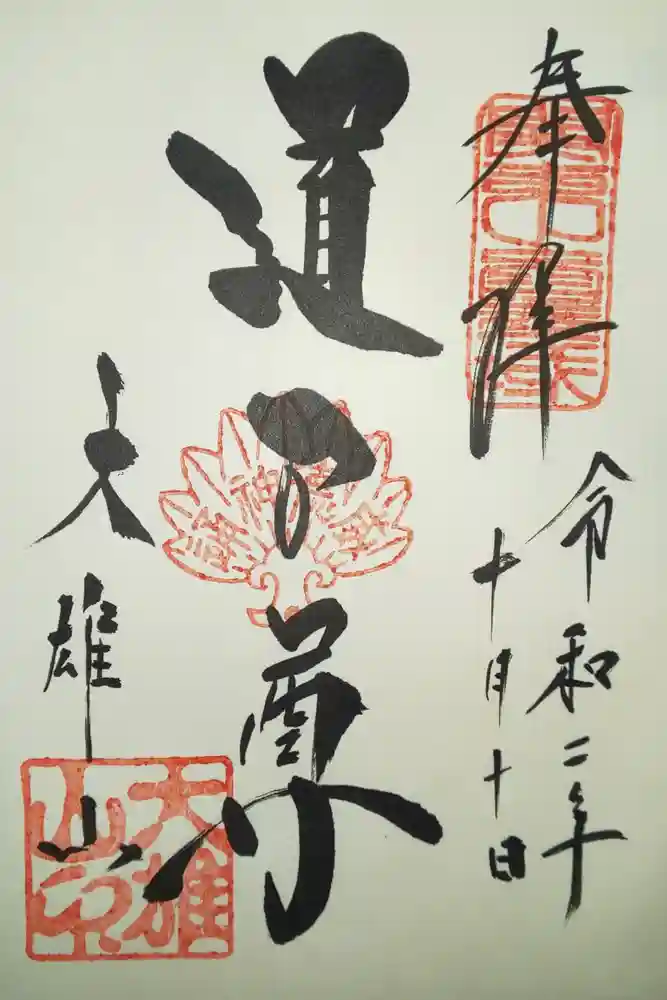 奉拝
令和二年
十月十日
道了尊
大雄山
大雄
山